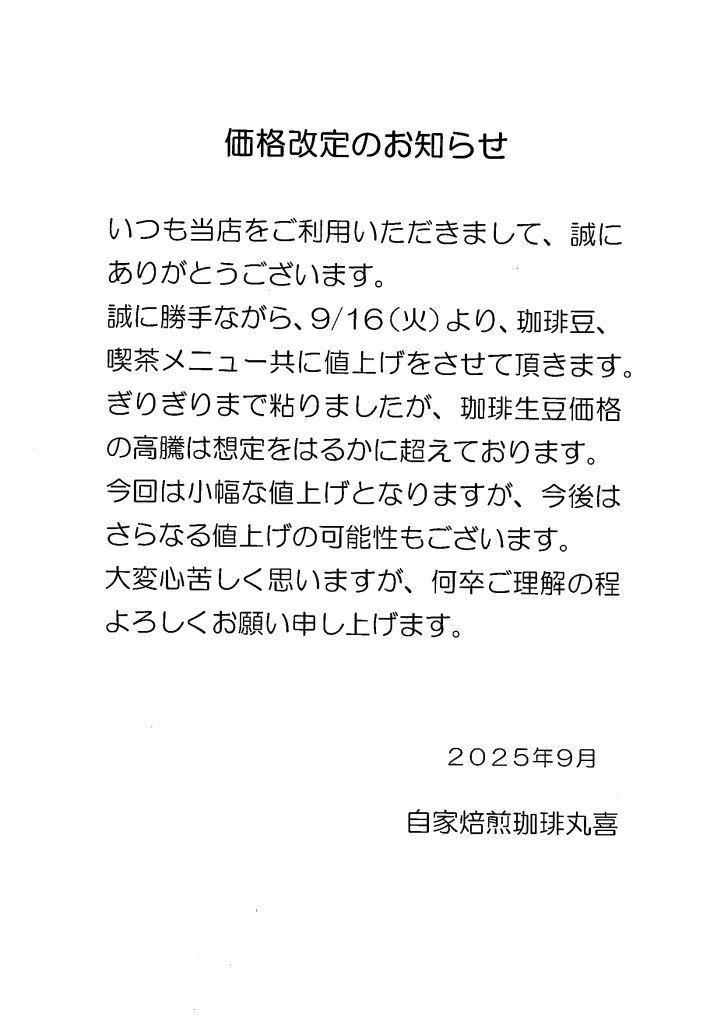 価格改定のお知らせ
いつも当店をご利用いただきまして、誠に
ありがとうございます。
誠に勝手ながら、9/16(火)より、珈琲豆、
喫茶メニュー共に値上げをさせて頂きます。
ぎりぎりまで粘りましたが、珈琲生豆価格
の高騰は想定をはるかに超えております。
今回は小幅な値上げとなりますが、今後は
さらなる値上げの可能性もございます。
大変心苦しく思いますが、何卒ご理解の程
よろしくお願い申し上げます。
２０２５年９月
自家焙煎珈琲丸喜